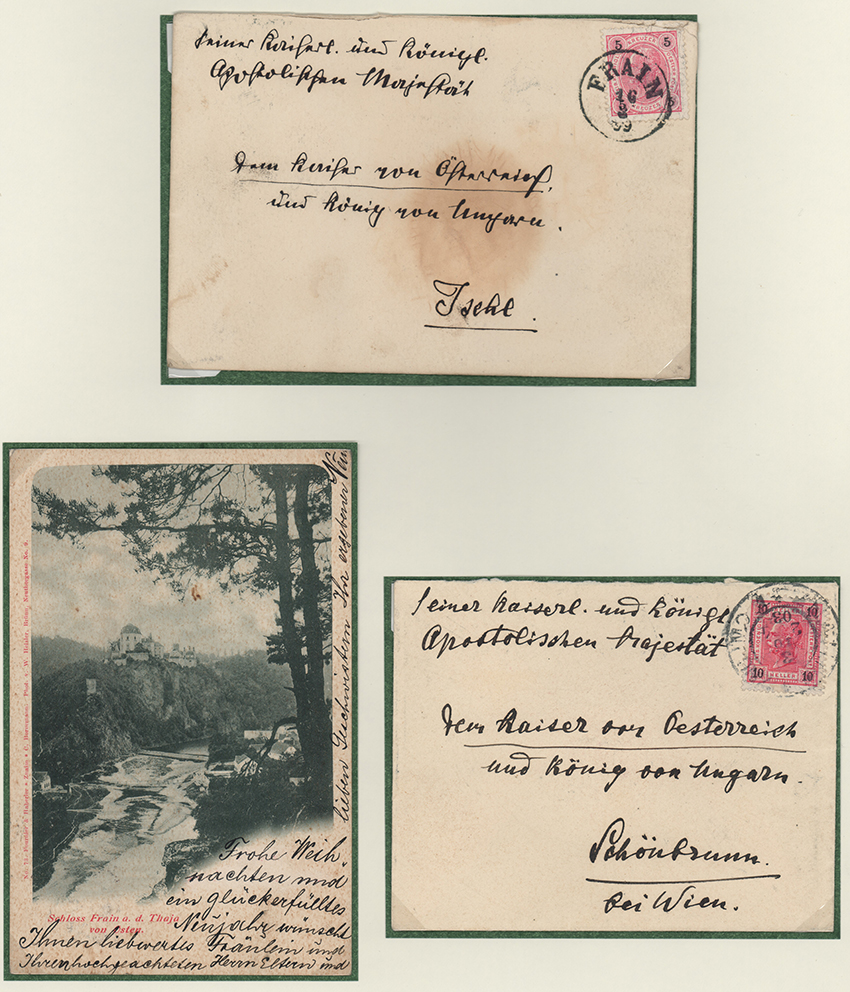 Seiner Kaiserl. und Königl.
Apostolischen Majestät
5 KREUZER 5
FRAIN
16
8
99
dem Kaiser von Österreich,
und König von Ungarn.
Ischl.
Schloss Frain a. d. Thaja
von Osten.
Frohe Weih-
nachten und
ein glückerfülltes
Neujahr wünscht
Ihnen liebwertes Fräulein und
Ihren hochgeachteten Herrn Eltern und
lieben Geschwistern Ihr ergebener
Seiner Kaiserl. und Königl
Apostolischen Majestät
10 10
10 HELLER 10
dem Kaiser von Oesterreich
und König von Ungarn.
Schönbrunn.
bei Wien.